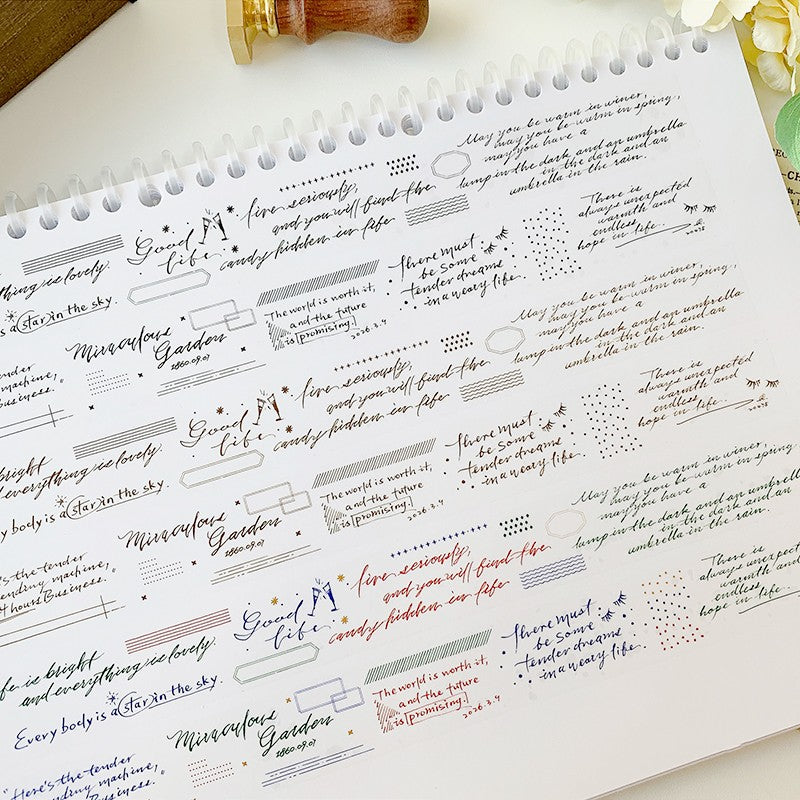 May you be warm in winer,
may you be warm in spring,
may you have a
lamp in the dark and an umbrella
in the dark and an
umbrella in the rain.
live seriously,
and you will find the
candy hidden in life
Good
life
There is
always unexpected
warmth and
endless
hope in life.
thing is lovely.
is a star in the sky.
There must
be some
tender dreams
in a weary life.
The world is worth it,
and the future
is promising.
2026.3.4
Miraculous
Garden
1860.09.07
tender
machine,
Business."
May you be warm in winer,
may you be warm in spring,
may you have a
lamp in the dark and an umbrella
in the dark and an
umbrella in the rain.
live seriously,
and you will find the
candy hidden in life
Good
life
There is
always unexpected
warmth and
endless
hope in life.
bright
everything is lovely.
y body is a star in the sky.
There must
be some
tender dreams
in a weary life.
The world is worth it,
and the future
is promising.
2026.3.4
Miraculous
Garden
1860.09.07
's the tender
ending machine,
4 hours Business."
May you be warm in winer,
may you be warm in spring,
may you have a
lamp in the dark and an umbrella
in the dark and an
umbrella in the rain.
live seriously,
and you will find the
candy hidden in life
Good
life
There is
always unexpected
warmth and
endless
hope in life.
fe is bright
and everything is lovely.
Every body is a star in the sky.
There must
be some
tender dreams
in a weary life.
The world is worth it,
and the future
is promising.
2026.3.4
Miraculous
Garden
1860.09.07
"Here's the tender
machine,
Business."